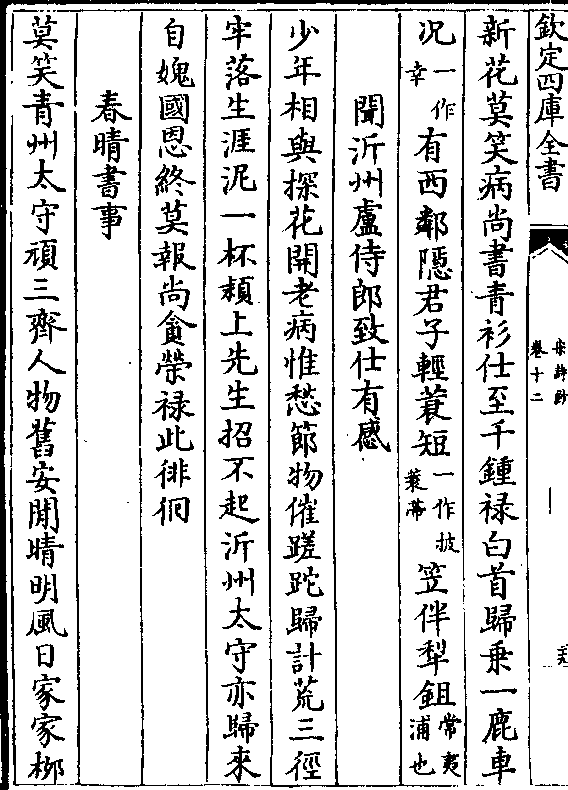 欽定四庫全書
宋詩鈔
卷十二
新花莫笑病尚書青衫仕至千鍾禄白首歸乗一鹿車
况一作幸有西鄰隠君子輕蓑短一作披蓑帶笠伴犁鉏常夷浦也
聞沂州盧侍郎致仕有感
少年相與探花開老病惟愁節物催蹉跎歸計荒三徑
牢落生涯泥一杯頴上先生招不起沂州太守亦歸來
自媿國恩終莫報尚貪榮禄此徘徊
春晴書事
莫笑青州太守頑三齊人物舊安閒晴明風日家家栁